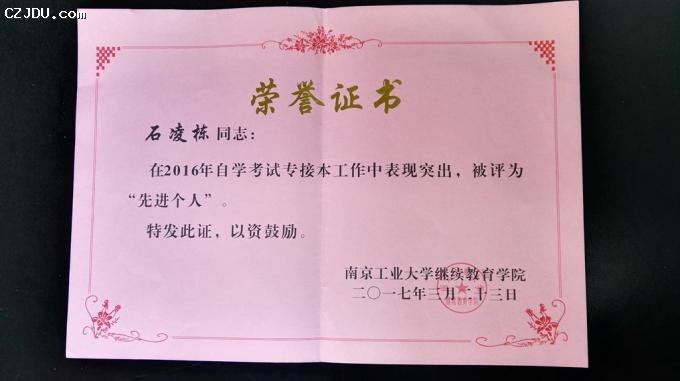 CZJDU.COM
荣誉证书
石凌栋 同志：
在2016年自学考试专接本工作中表现突出，被评为
“先进个人”。
特发此证，以资鼓励。
南京工业大学继续教育学院
二〇一七年三月二十三日